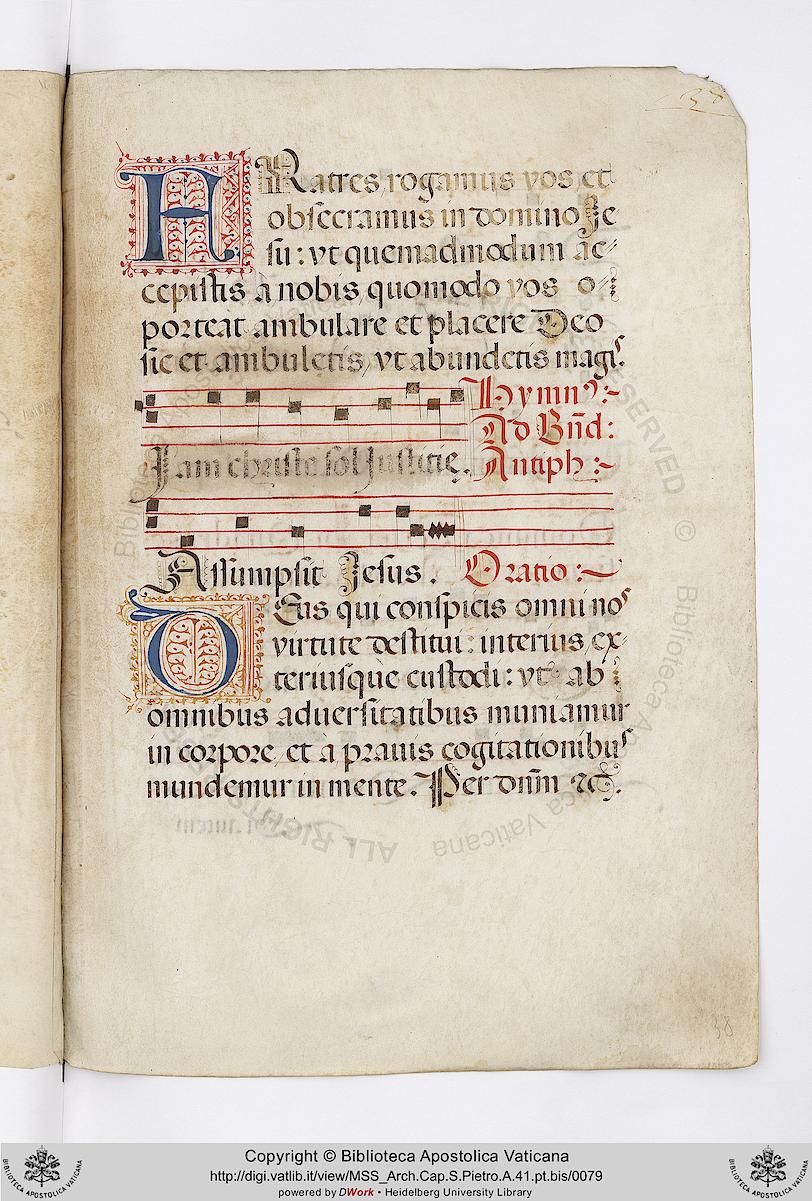 38
FRatres rogamus vos et
obsecramus in domino Je
su: vt quemadmodum ac-
cepistis a nobis quomodo vos o-
porteat ambulare et placere Deo
sic et ambuletis, vt abundetis magis.
Hymn9:
Ad Bnd:
Iam christe sol Justicie. Antiph:
Assumpsit Jesus. Oratio:
DEus qui conspicis omni nos
virtute destitui: interius, ex-
teriusque custodi: vt ab
omnibus aduersitatibus muniamur
in corpore, et a prauis cogitationibus
mundemur in mente. Per dnm &c.
38
Copyright © Biblioteca Apostolica Vaticana
http://digi.vatlib.it/view/MSS_Arch.Cap.S.Pietro.A.41.pt.bis/0079
powered by DWork • Heidelberg University Library